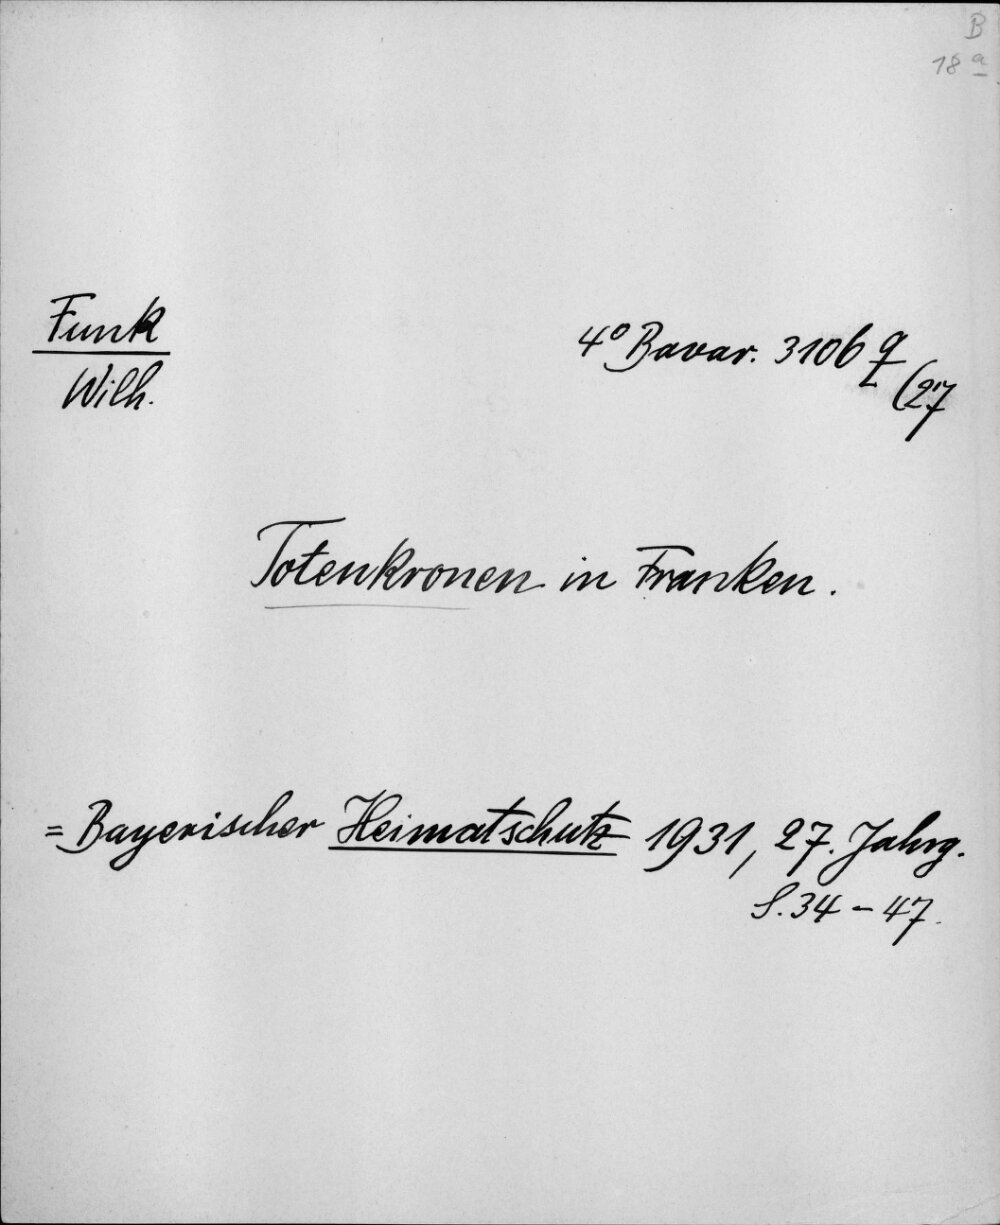 B
18 a
Funk
Wilh.
4° Bavar. 3106 q
(27
Totenkronen in Franken.
= Bayerischer Heimatschutz 1931, 27. Jahrg.
S. 34 - 47.